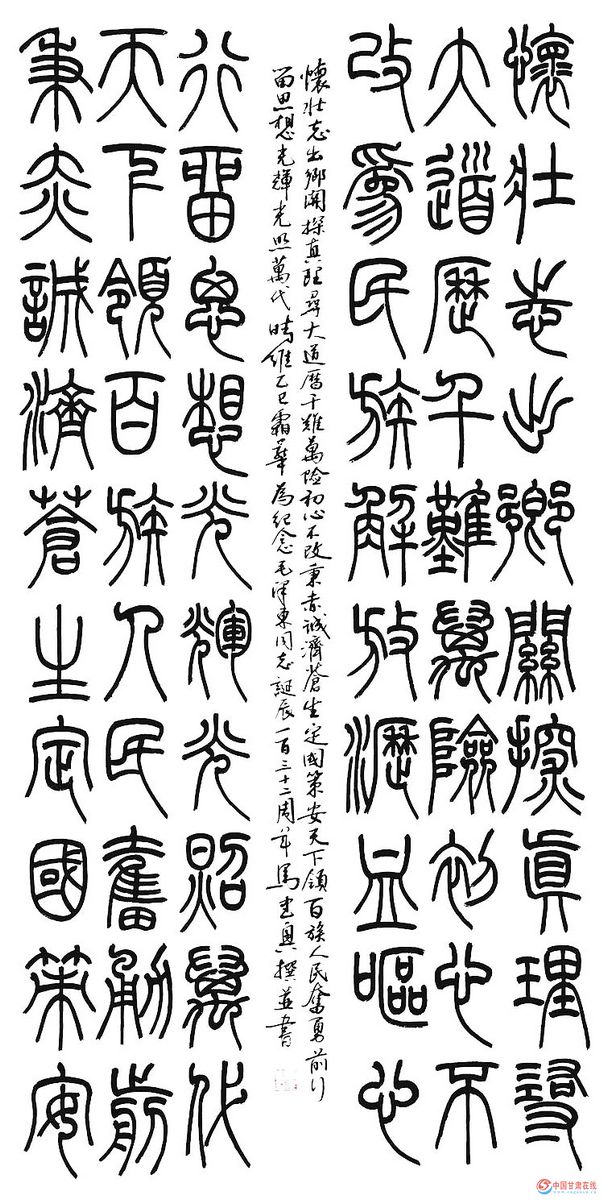 懷壯志出鄉關探真理尋
大道歷千難萬險初心不
改爲民族解放瀝血嘔心
懷壯志出鄉關探真理尋大道曆千难萬险初心不改秉赤诚濟蒼生定國策安天下领百族人民奮勇前行
留思想光輝光照萬代時維乙巳霜華為纪念毛泽東同志誕辰一百三十二周年馬 撰並書
秉赤誠濟蒼生定國策安
天下領百族人民奮勇前
行留思想光輝光照萬代
中国甘肃在线